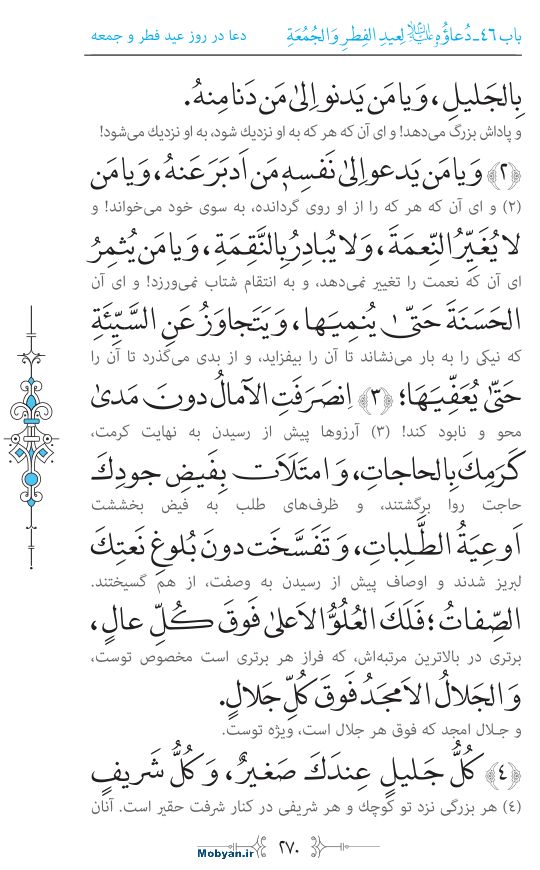 باب ٤٦ـ دُعاؤُهُ عليه‌السلام لِعیدِ الفِطرِ وَالجُمُعَةِ دعا در روز عید فطر و جمعه
بِالجَلیلِ، وَیا مَن یَدنو اِلیٰ مَن دَنا مِنهُ.
و پاداش بزرگ می‌دهد! و ای آن که هر که به او نزدیك شود، به او نزدیك می‌شود!
﴿٢﴾ وَیا مَن یَدعو اِلیٰ نَفسِهٖ مَن اَدبَرَ عَنهُ، وَیا مَن
(٢) و ای آن که هر که را از او روی گردانده، به سوی خود می‌خواند! و
لا یُغَیِّرُ النِّعمَةَ، وَلا یُبادِرُ بِالنَّقِمَةِ، وَیا مَن یُثمِرُ
ای آن که نعمت را تغییر نمی‌دهد، و به انتقام شتاب نمی‌ورزد! و ای آن
الحَسَنَةَ حَتّیٰ یُنمِیَها، وَیَتَجاوَزُ عَنِ السَّیِّئَةِ
که نیکی را به بار می‌نشاند تا آن را بیفزاید، و از بدی می‌گذرد تا آن را
حَتّیٰ یُعَفِّیَهَا؛ ﴿٣﴾ اِنصَرَفَتِ الآمالُ دونَ مَدیٰ
محو و نابود کند! (٣) آرزوها پیش از رسیدن به نهایت کرمت،
کَرَمِكَ بِالحاجاتِ، وَ امتَلَاَت بِفَیضِ جودِكَ
حاجت روا برگشتند، و ظرف‌های طلب به فیض بخششت
اَوعِیَةُ الطَّلِباتِ، وَ تَفَسَّخَت دونَ بُلوغِ نَعتِكَ
لبریز شدند و اوصاف پیش از رسیدن به وصفت، از هم گسیختند.
الصِّفاتُ؛ فَلَكَ العُلُوُّ الاَعلیٰ فَوقَ کُلِّ عالٍ،
برتری در بالاترین مرتبه‌اش، که فراز هر برتری است مخصوص توست،
وَ الجَلالُ الاَمجَدُ فَوقَ کُلِّ جَلالٍ.
و جـلال امجد که فوق هر جلال است، ویژه توست.
﴿٤﴾ کُلُّ جَلیلٍ عِندَكَ صَغیرٌ، وَ کُلُّ شَریفٍ
(٤) هر بزرگی نزد تو کوچك و هر شریفی در کنار شرفت حقیر است. آنان
٢٧٠
Mobyan.ir